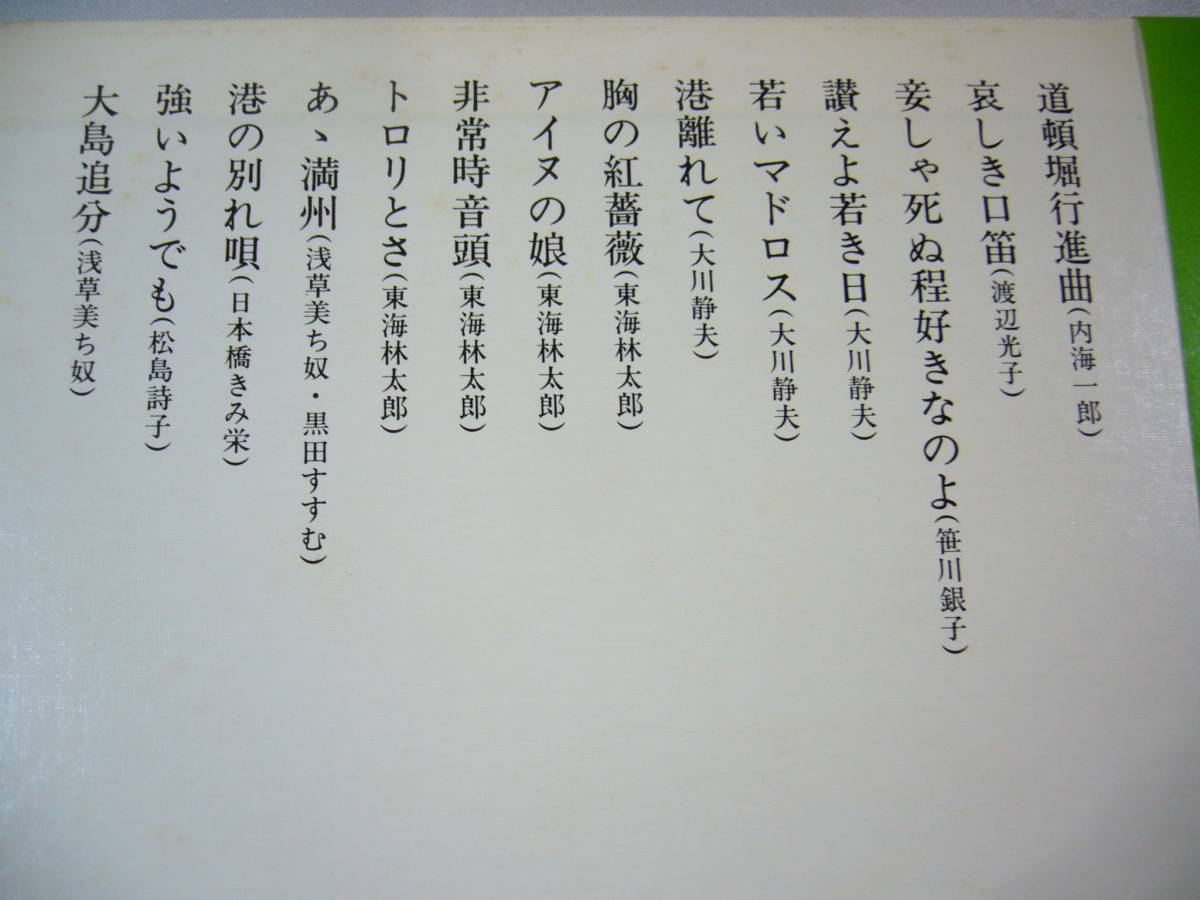 道頓堀行進曲(内海一郎)
哀しき口笛(渡辺光子)
妾しゃ死ぬ程好きなのよ(笹川銀子)
讃えよ若き日(大川静夫)
若いマドロス(大川静夫)
港離れて(大川静夫)
胸の紅薔薇(東海林太郎)
アイヌの娘(東海林太郎)
非常時音頭(東海林太郎)
トロリとさ(東海林太郎)
あゝ満州(浅草美ち奴・黒田すすむ)
港の別れ唄(日本橋きみ栄)
強いようでも(松島詩子)
大島追分(浅草美ち奴)